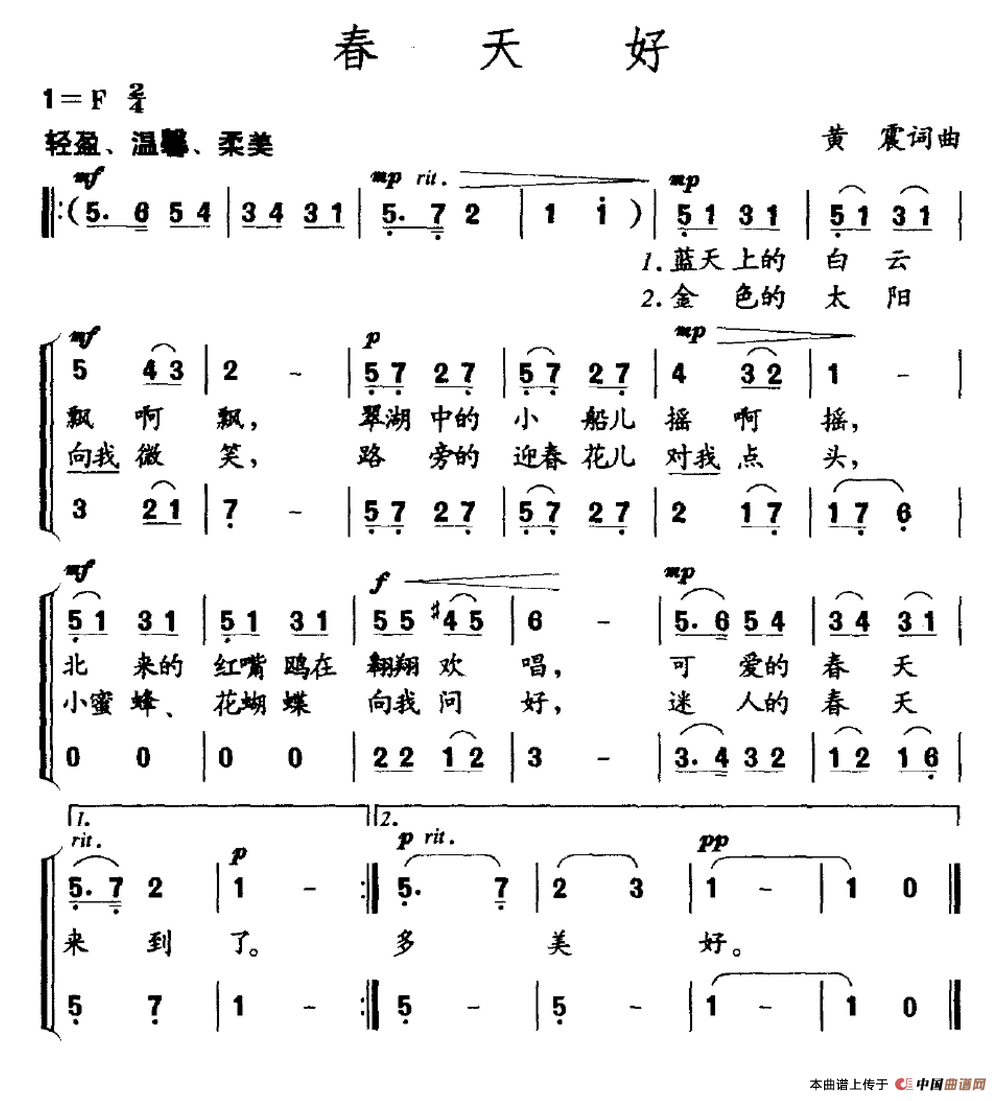 春 天 好
1=F 2/4
轻盈、温馨、柔美
黄 震词曲
mf mp rit. mp
𝄆 ( 5. 6 5 4 | 3 4 3 1 | 5. 7 2 | 1 i ) | 5 1 3 1 | 5 1 3 1 |
1.蓝天上的 白 云
2.金 色的 太 阳
mf p mp
5 4 3 | 2 - | 5 7 2 7 | 5 7 2 7 | 4 3 2 | 1 - |
飘 啊 飘, 翠湖 中的 小 船儿 摇 啊 摇,
向我 微 笑, 路 旁的 迎春 花儿 对我 点 头,
3 2 1 | 7 - | 5 7 2 7 | 5 7 2 7 | 2 1 7 | 1 7 6 |
mf f mp
5 1 3 1 | 5 1 3 1 | 5 5 #4 5 | 6 - | 5. 6 5 4 | 3 4 3 1 |
北 来的 红嘴 鸥在 翱翔 欢 唱, 可 爱的 春 天
小蜜 蜂、 花蝴 蝶 向我 问 好, 迷 人的 春 天
0 0 | 0 0 | 2 2 1 2 | 3 - | 3. 4 3 2 | 1 2 1 6 |
1. 2.
rit. p p rit. pp
5. 7 2 | 1 - 𝄇 5. 7 | 2 3 | 1 - | 1 0 ‖
来 到 了。 多 美 好。
5 7 | 1 - 𝄇 5 - | 5 - | 1 - | 1 0 ‖
本曲谱上传于 中国曲谱网